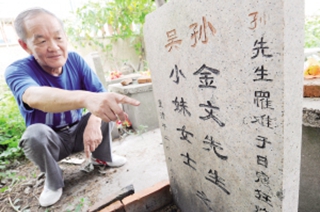 孙先生罹难于日寇狂
孙金文先生
吴小妹女士